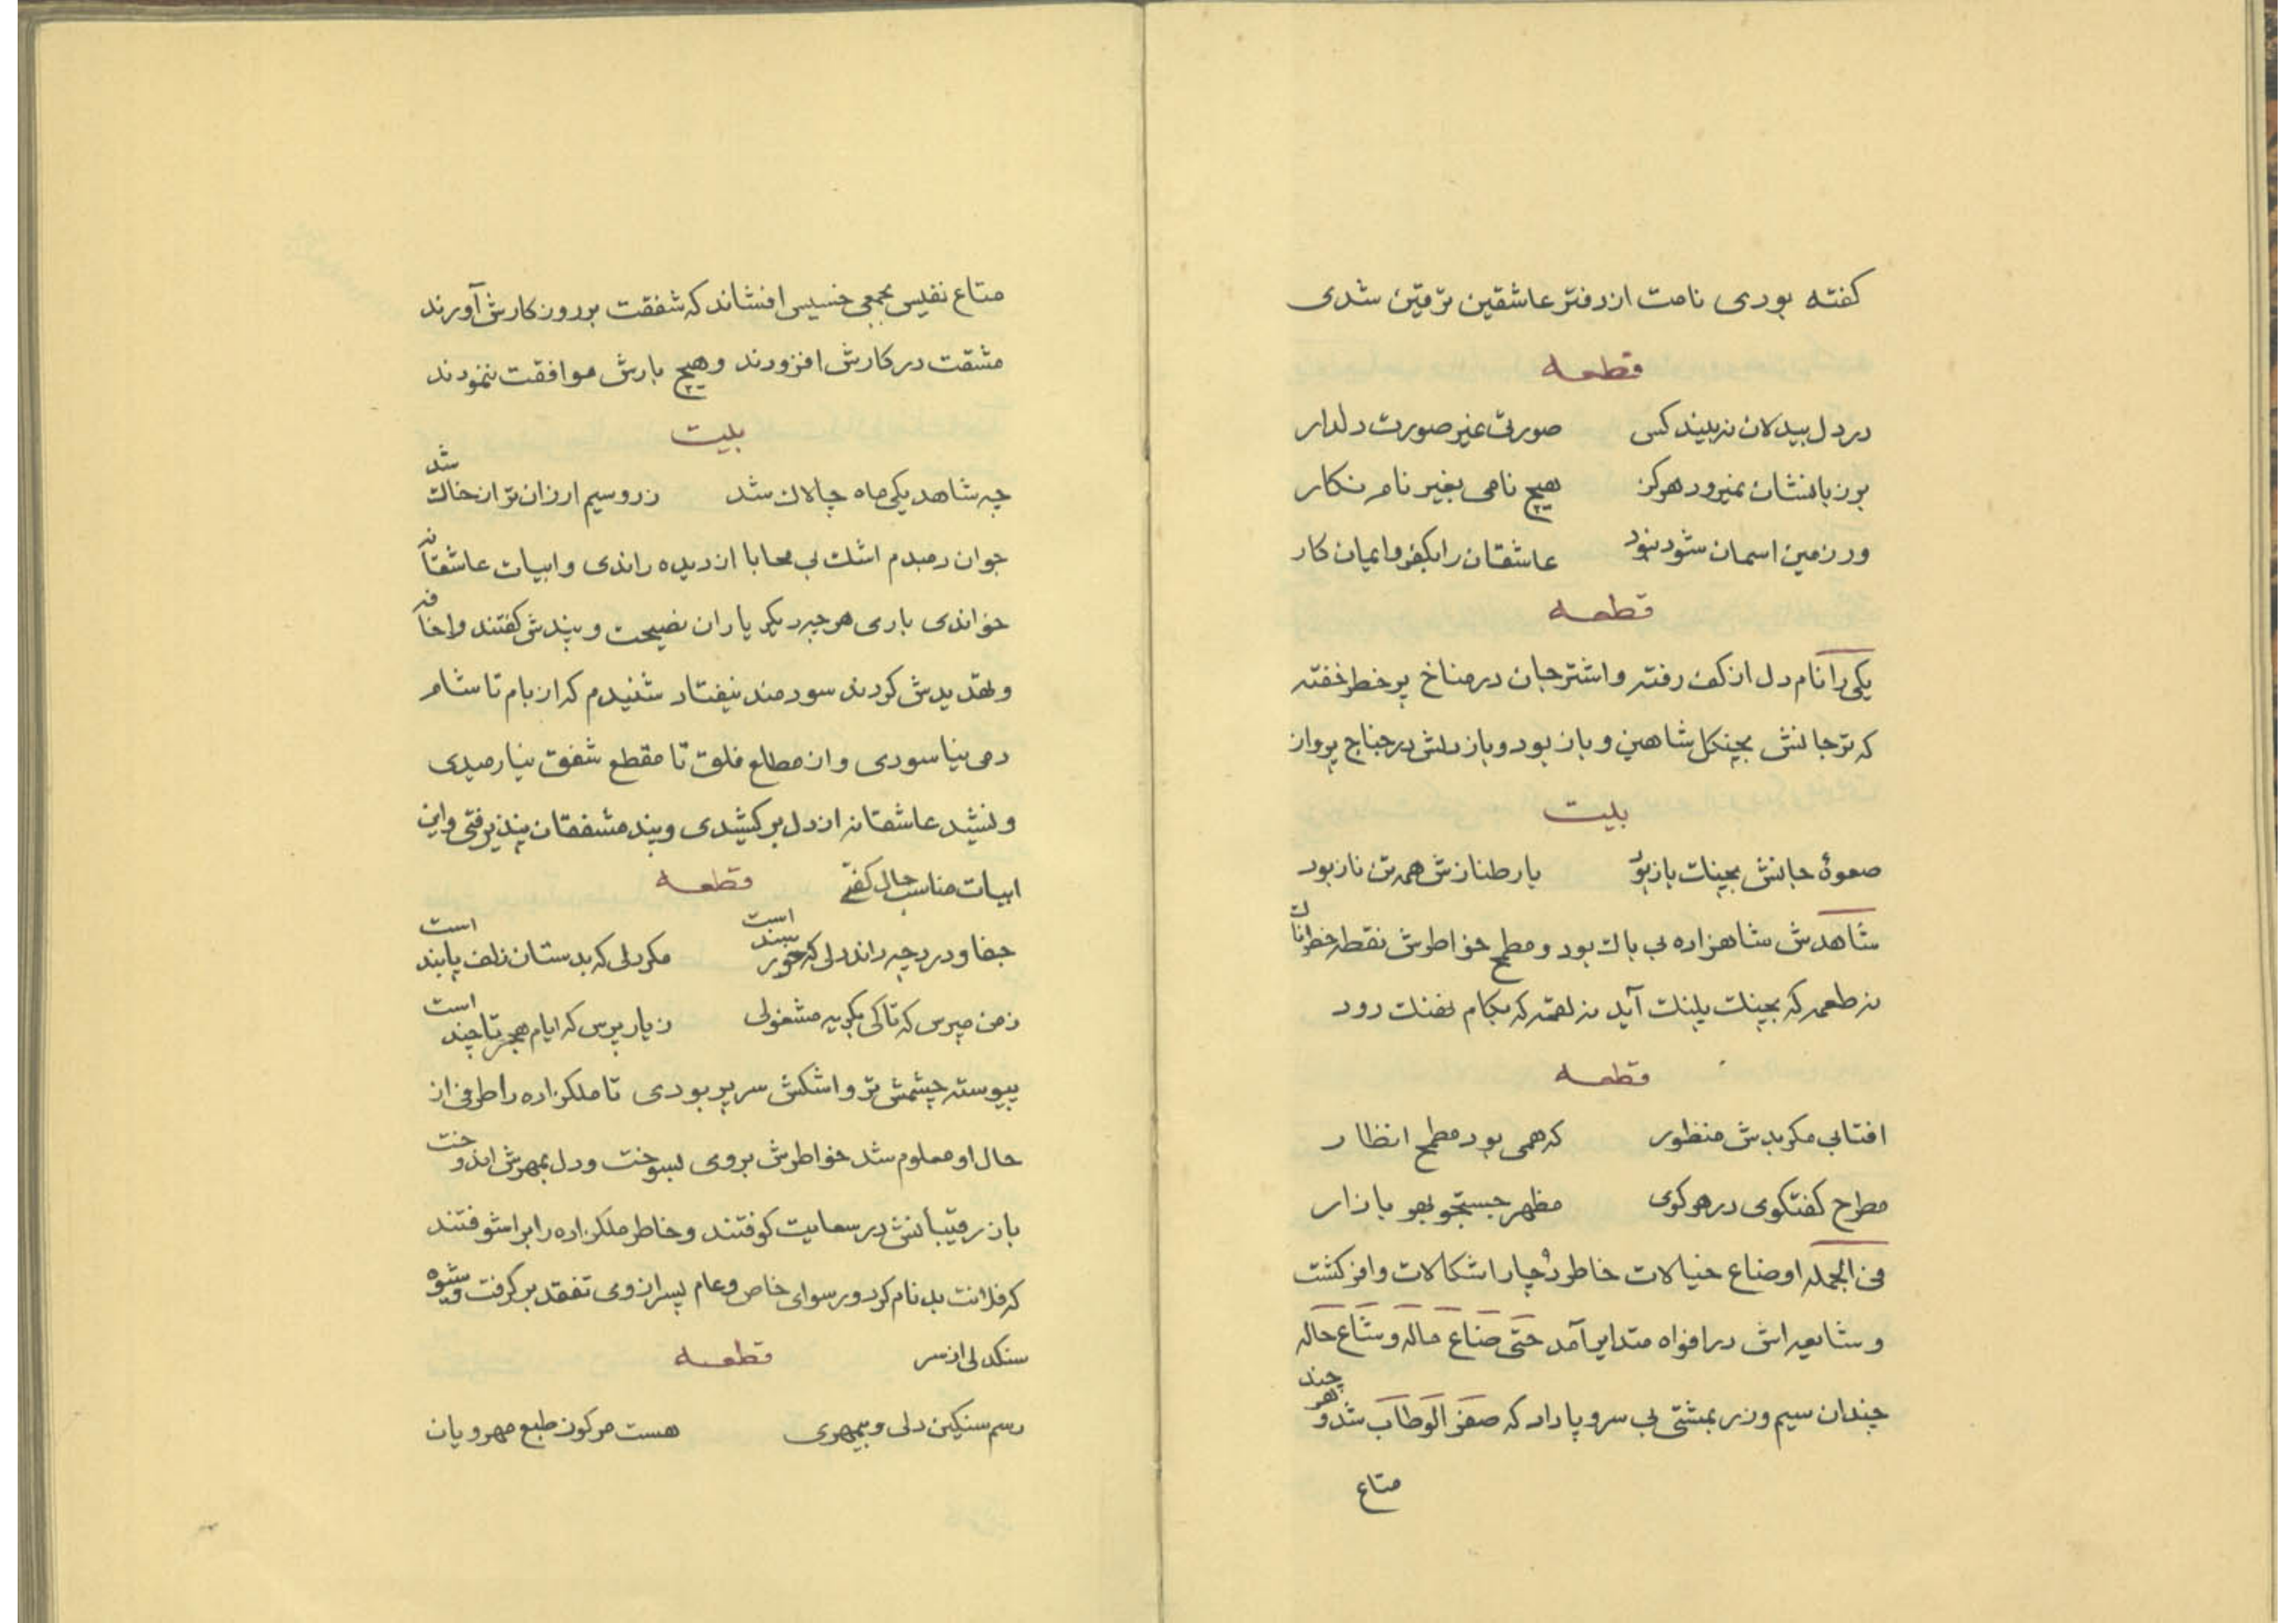 کفته بودی نامت از دفتر عاشقین ترقین شدی
قطعه
در دل بیدلان نه بیند کس صورتی غیر صورت دلدار
بر زبانشان نمیرود هرکز هیچ نامی بغیر نام نکار
ور زمین اسمان شود نبود عاشقان را بکفر و ایمان کار
قطعه
یکی را نام دل از کف رفته و اشتر جان در مناخ پر خطر خفته
که تر جانش بچنکل شاهین و باز بود و باز دلش در جناح پرواز
بیت
صعوهٔ جانش بچنات باز بود یار طنازش همه تن ناز بود
شاهدش شاهزاده بی باك بود و مطمح خواطرش نقطه خطرناك
نه طعمه که بچنك پلنك آید نه لقمه که بکام نهنك رود
قطعه
افتابی مکر بدش منظور که همی بود مطمح انظار
مطرح کفتکوی در هر کوی مظهر جستجو بهر بازار
فی الجمله اوضاع خیالات خاطر دچار اشکالات وافر کشت
و شایعه اش در افواه متدایر آمد حتی ضاع ماله و شاع حاله
چندان سیم و زر بمشتی بی سر و پا داد که صفر الوطاب شد و هر چند
متاع
متاع نفیس بجمعی خسیس افشاند که شفقت بر روز کارش آورند
مشقت در کارش افزودند و هیچ بارش موافقت ننمودند
بیت
چه شاهد یکی ماه چالاك شد زر و سیم ارزان تر از خاك شد
جوان دمبدم اشك بی محابا از دیده راندی و ابیات عاشقانه
خواندی باری هر چه دیکر یاران نصیحت و پندش کفتند و اخافه
و تهدیدش کردند سودمند نیفتاد شنیدم که از بام تا شام
دمی نیاسودی و از مطالع فلق تا مقطع شفق نیارمیدی
و نشید عاشقانه از دل برکشیدی و پند مشفقان نپذیرفتی و این
ابیات مناسب حال کفتی قطعه
جفا و درد چه داند دلی که خور سند است مکر دلی که بدستان زلف پابند است
ز من مپرس که تا کی بکریه مشغولی ز یار پرس که ایام هجر تا چند است
پیوسته چشمش تر و اشکش سر پر بودی تا ملکزاده را طرفی از
حال او معلوم شد خواطرش بر وی بسوخت و دل بمهرش اندوخت
باز رقیبانش در سعایت کوفتند و خاطر ملکزاده را بر اشوفتند
که فلانت بد نام کرد و رسوای خاص و عام پس از وی تفقد بر کرفت و شیوه
سنکدلی از سر قطعه
رسم سنکین دلی و بیمهری هست مرکوز طبع مهرویان